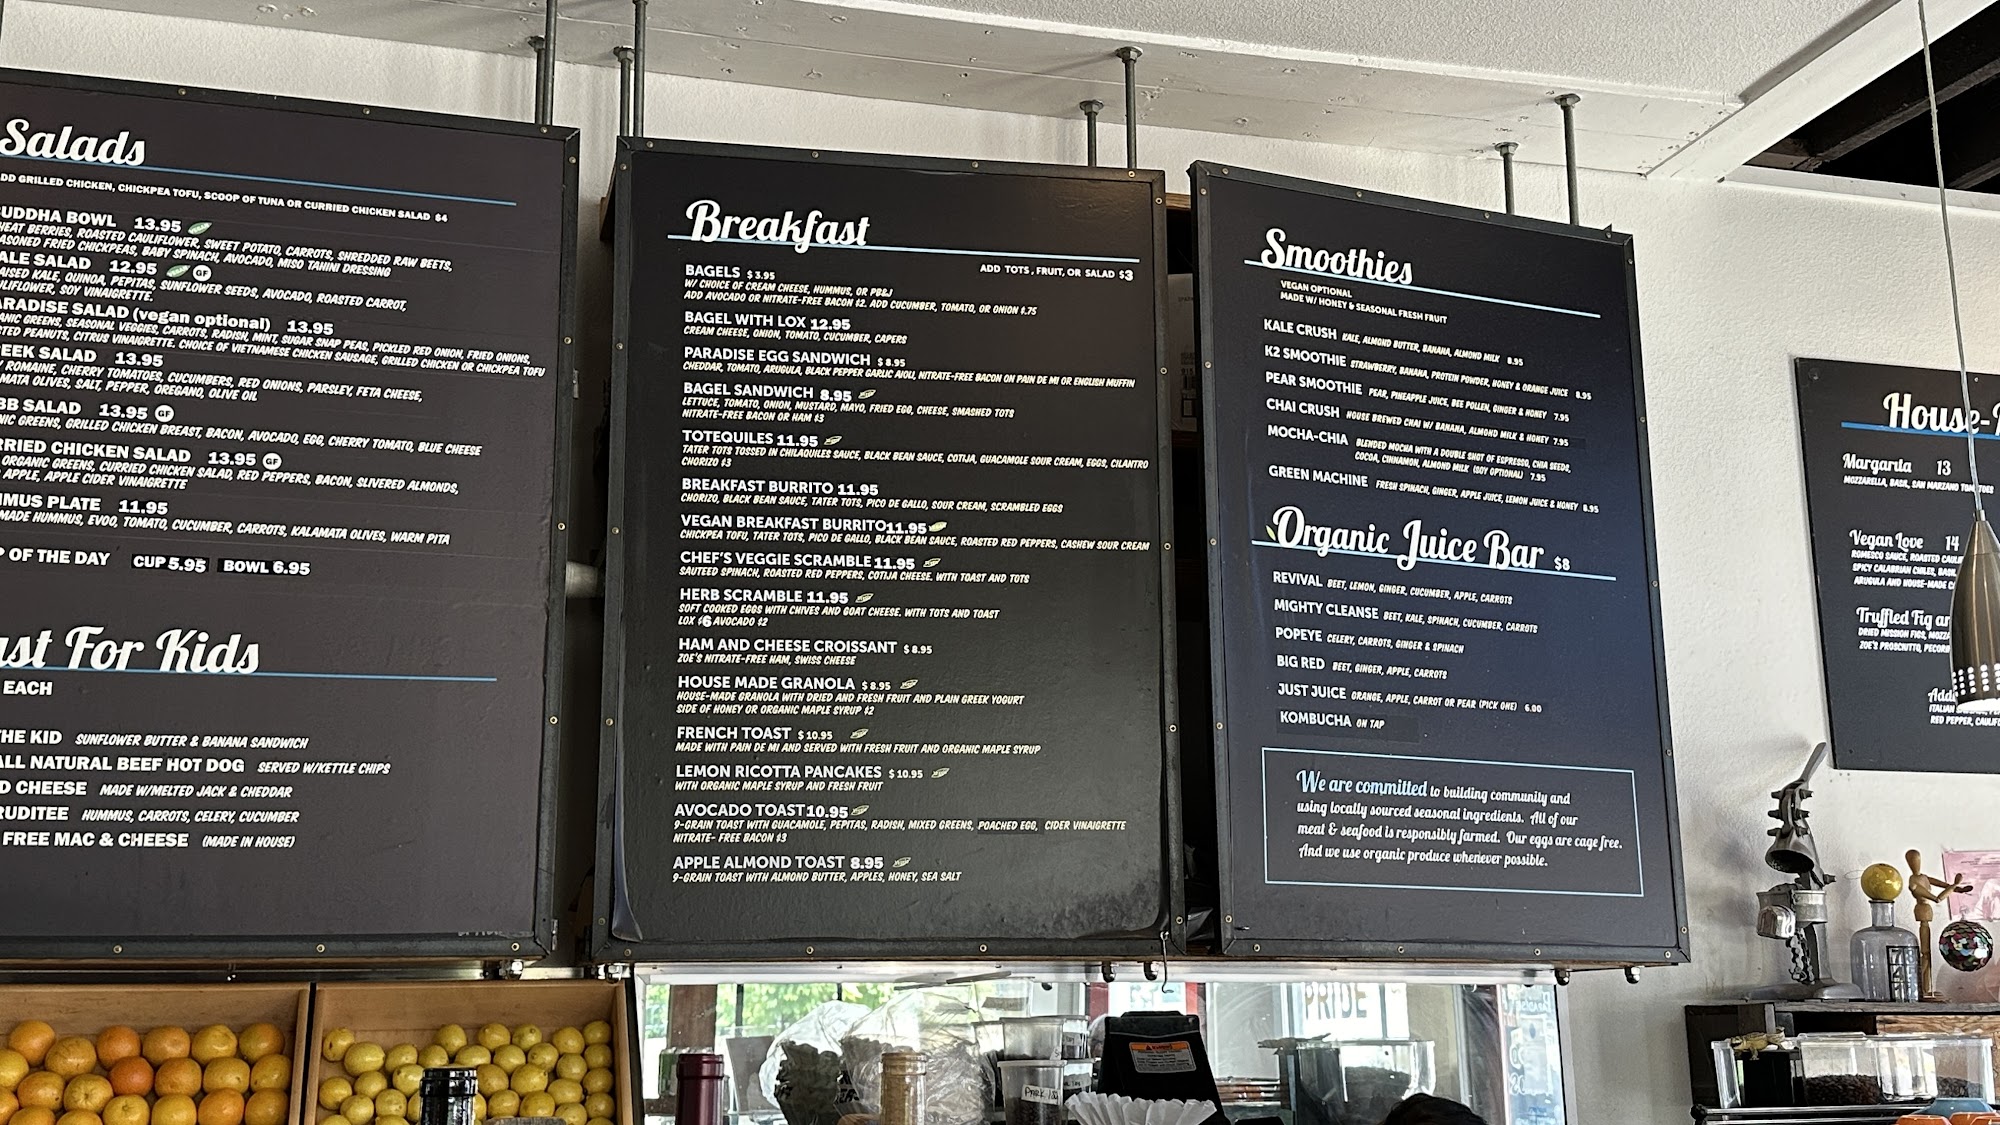 Salads
DD GRILLED CHICKEN, CHICKPEA TOFU, SCOOP OF TUNA OR CURRIED CHICKEN SALAD $4
UDDHA BOWL 13.95
HEAT BERRIES, ROASTED CAULIFLOWER, SWEET POTATO, CARROTS, SHREDDED RAW BEETS,
ASONED FRIED CHICKPEAS, BABY SPINACH, AVOCADO, MISO TAHINI DRESSING
ALE SALAD 12.95 GF
AISED KALE, QUINOA, PEPITAS, SUNFLOWER SEEDS, AVOCADO, ROASTED CARROT,
ULIFLOWER, SOY VINAIGRETTE.
ARADISE SALAD (vegan optional) 13.95
ANIC GREENS, SEASONAL VEGGIES, CARROTS, RADISH, MINT, SUGAR SNAP PEAS, PICKLED RED ONION, FRIED ONIONS,
STED PEANUTS, CITRUS VINAIGRETTE. CHOICE OF VIETNAMESE CHICKEN SAUSAGE, GRILLED CHICKEN OR CHICKPEA TOFU
EEK SALAD 13.95
ROMAINE, CHERRY TOMATOES, CUCUMBERS, RED ONIONS, PARSLEY, FETA CHEESE,
MATA OLIVES, SALT, PEPPER, OREGANO, OLIVE OIL
BB SALAD 13.95 GF
NIC GREENS, GRILLED CHICKEN BREAST, BACON, AVOCADO, EGG, CHERRY TOMATO, BLUE CHEESE
RRIED CHICKEN SALAD 13.95 GF
ORGANIC GREENS, CURRIED CHICKEN SALAD, RED PEPPERS, BACON, SLIVERED ALMONDS,
APPLE, APPLE CIDER VINAIGRETTE
MMUS PLATE 11.95
MADE HUMMUS, EVOO, TOMATO, CUCUMBER, CARROTS, KALAMATA OLIVES, WARM PITA
P OF THE DAY CUP 5.95 BOWL 6.95
ast For Kids
EACH
THE KID SUNFLOWER BUTTER & BANANA SANDWICH
ALL NATURAL BEEF HOT DOG SERVED W/KETTLE CHIPS
D CHEESE MADE W/MELTED JACK & CHEDDAR
RUDITEE HUMMUS, CARROTS, CELERY, CUCUMBER
FREE MAC & CHEESE (MADE IN HOUSE)
Breakfast
ADD TOTS, FRUIT, OR SALAD $3
BAGELS $3.95
W/ CHOICE OF CREAM CHEESE, HUMMUS, OR PB&J
ADD AVOCADO OR NITRATE-FREE BACON $2. ADD CUCUMBER, TOMATO, OR ONION $.75
BAGEL WITH LOX 12.95
CREAM CHEESE, ONION, TOMATO, CUCUMBER, CAPERS
PARADISE EGG SANDWICH $8.95
CHEDDAR, TOMATO, ARUGULA, BLACK PEPPER GARLIC AIOLI, NITRATE-FREE BACON ON PAIN DE MI OR ENGLISH MUFFIN
BAGEL SANDWICH 8.95
LETTUCE, TOMATO, ONION, MUSTARD, MAYO, FRIED EGG, CHEESE, SMASHED TOTS
NITRATE-FREE BACON OR HAM $3
TOTEQUILES 11.95
TATER TOTS TOSSED IN CHILAQUILES SAUCE, BLACK BEAN SAUCE, COTIJA, GUACAMOLE SOUR CREAM, EGGS, CILANTRO
CHORIZO $3
BREAKFAST BURRITO 11.95
CHORIZO, BLACK BEAN SAUCE, TATER TOTS, PICO DE GALLO, SOUR CREAM, SCRAMBLED EGGS
VEGAN BREAKFAST BURRITO 11.95
CHICKPEA TOFU, TATER TOTS, PICO DE GALLO, BLACK BEAN SAUCE, ROASTED RED PEPPERS, CASHEW SOUR CREAM
CHEF'S VEGGIE SCRAMBLE 11.95
SAUTEED SPINACH, ROASTED RED PEPPERS, COTIJA CHEESE. WITH TOAST AND TOTS
HERB SCRAMBLE 11.95
SOFT COOKED EGGS WITH CHIVES AND GOAT CHEESE. WITH TOTS AND TOAST
LOX $6 AVOCADO $2
HAM AND CHEESE CROISSANT $8.95
ZOE'S NITRATE-FREE HAM, SWISS CHEESE
HOUSE MADE GRANOLA $8.95
HOUSE-MADE GRANOLA WITH DRIED AND FRESH FRUIT AND PLAIN GREEK YOGURT
SIDE OF HONEY OR ORGANIC MAPLE SYRUP $2
FRENCH TOAST $10.95
MADE WITH PAIN DE MI AND SERVED WITH FRESH FRUIT AND ORGANIC MAPLE SYRUP
LEMON RICOTTA PANCAKES $10.95
WITH ORGANIC MAPLE SYRUP AND FRESH FRUIT
AVOCADO TOAST 10.95
9-GRAIN TOAST WITH GUACAMOLE, PEPITAS, RADISH, MIXED GREENS, POACHED EGG, CIDER VINAIGRETTE
NITRATE- FREE BACON $3
APPLE ALMOND TOAST 8.95
9-GRAIN TOAST WITH ALMOND BUTTER, APPLES, HONEY, SEA SALT
Smoothies
VEGAN OPTIONAL
MADE W/ HONEY & SEASONAL FRESH FRUIT
KALE CRUSH KALE, ALMOND BUTTER, BANANA, ALMOND MILK 8.95
K2 SMOOTHIE STRAWBERRY, BANANA, PROTEIN POWDER, HONEY & ORANGE JUICE 8.95
PEAR SMOOTHIE PEAR, PINEAPPLE JUICE, BEE POLLEN, GINGER & HONEY 7.95
CHAI CRUSH HOUSE BREWED CHAI W/ BANANA, ALMOND MILK & HONEY 7.95
MOCHA-CHIA BLENDED MOCHA WITH A DOUBLE SHOT OF ESPRESSO, CHIA SEEDS,
COCOA, CINNAMON, ALMOND MILK (SOY OPTIONAL) 7.95
GREEN MACHINE FRESH SPINACH, GINGER, APPLE JUICE, LEMON JUICE & HONEY 8.95
Organic Juice Bar $8
REVIVAL BEET, LEMON, GINGER, CUCUMBER, APPLE, CARROTS
MIGHTY CLEANSE BEET, KALE, SPINACH, CUCUMBER, CARROTS
POPEYE CELERY, CARROTS, GINGER & SPINACH
BIG RED BEET, GINGER, APPLE, CARROTS
JUST JUICE ORANGE, APPLE, CARROT OR PEAR (PICK ONE) 6.00
KOMBUCHA ON TAP
We are committed to building community and
using locally sourced seasonal ingredients. All of our
meat & seafood is responsibly farmed. Our eggs are cage free.
And we use organic produce whenever possible.
House-
Margarita 13
MOZZARELLA, BASIL, SAN MARZANO TOMATOES
Vegan Love 14
ROMESCO SAUCE, ROASTED
SPICY CALABRIAN CHILES, BASIL
ARUGULA AND HOUSE-MADE
Truffled Fig
DRIED MISSION FIGS,
ZOE'S PROSCIUTTO,
ITALIAN
RED PEPPER,
PRIDE